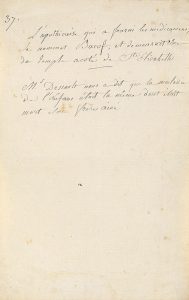 37.
L'apothicaire qui a fourni les médicamens
se nommait et demeurait
du Temple à coté de Ste Elisabeth
Mr Desault nous a dit que la maladie
de l'Enfant était la même dont était
mort son frère ainé